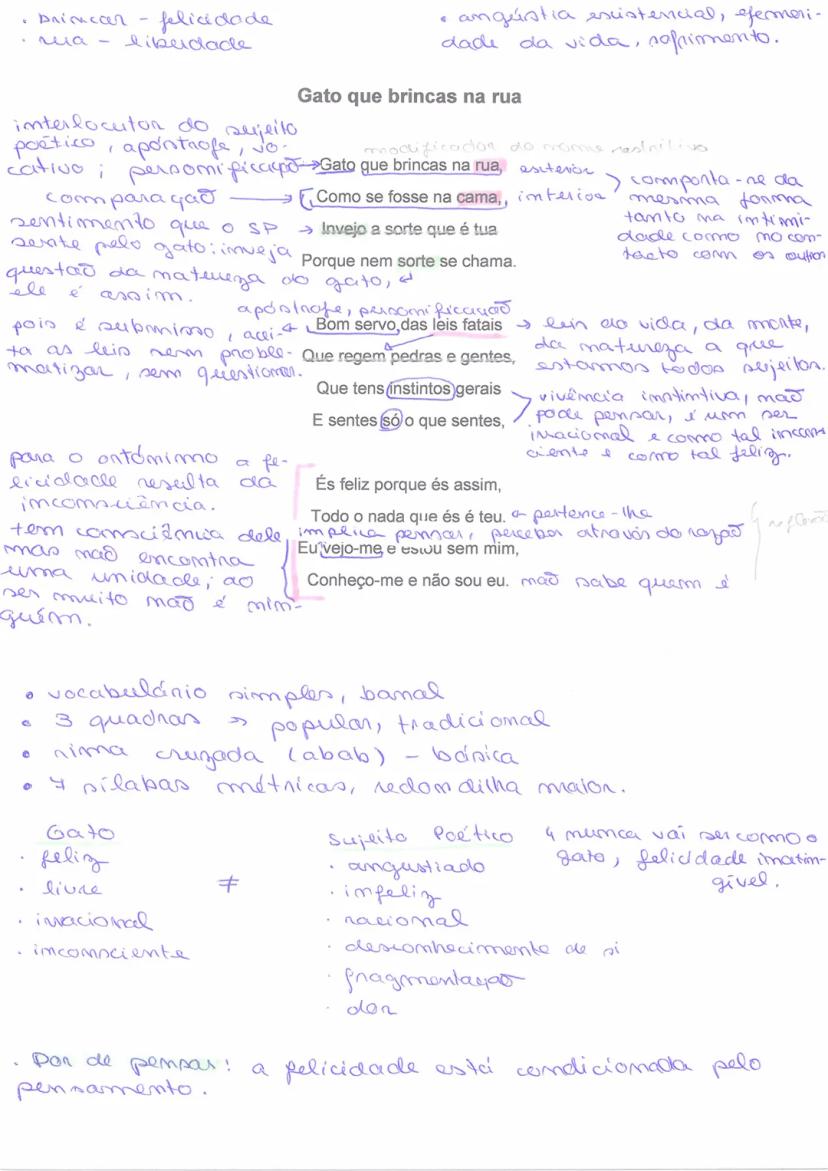 · brincar - felicidade
· rua - liberdade
• angústia existencial, efemeri-
dade da vida, sofrimento.
Gato que brincas na rua
interlocutor do sujeito
poético, apóstrofe, vo-
cativo; personificação
modificador do nome restritivo
Gato que brincas na rua, exterior
comparação → Como se fosse na cama, interior
comporta-se da
mesma forma
tanto na intimi-
dade como no con-
tacto com os outros
sentimento que o SP
sente pelo gato: inveja
→ Invejo a sorte que é tua
Porque nem sorte se chama.
questão da natureza do gato,
ele é assim.
apóstrofe, personificação
pois é submisso, acei-
ta as leis sem proble-
matizar, sem questionar.
Bom servo das leis fatais → leis da vida, da morte,
da natureza a que
estamos todos sujeitos.
Que regem pedras e gentes,
Que tens instintos gerais
E sentes só o que sentes,
vivência instintiva, não
pode pensar, é um ser
irracional e como tal incons
ciente e como tal feliz.
para o ortónimo a fe-
licidade resulta da
inconsciência.
És feliz porque és assim,
Todo o nada que és é teu. ← pertence-lhe
implica pensar, perceber através da razão
tem consciência dele
mas não encontra
uma unidade; ao
ser muito não é nin-
guém.
Eu vejo-me e estou sem mim,
Conheço-me e não sou eu. não sabe quem é
• vocabulário simples, banal
• 3 quadras → popular, tradicional
• rima cruzada (abab) - básica
• 7 sílabas métricas, redondilha maior.
Gato
· feliz
· livre
· irracional
· inconsciente
≠
Sujeito Poético
· angustiado
· infeliz
· racional
· desconhecimento de si
· fragmentação
· dor
↳ nunca vai ser como o
gato, felicidade inatin-
gível.
. Dor de pensar: a felicidade está condicionada pelo
pensamento.